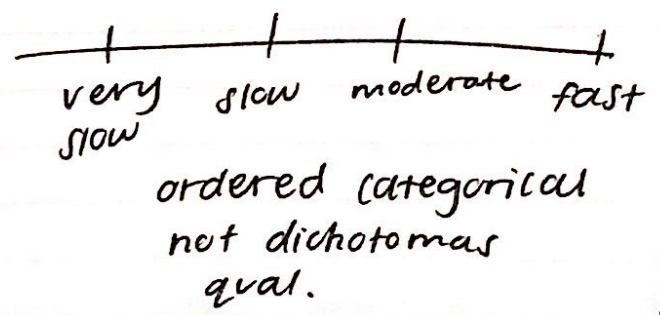 very slow moderate fast
slow
ordered categorical
not dichotomas
qual.